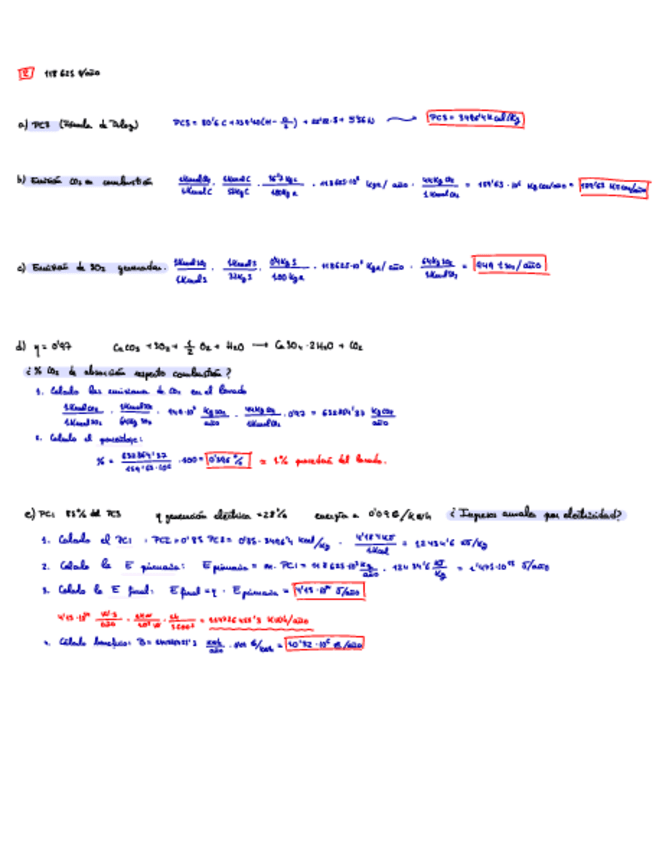 2 118 625 t/año
a) PCS (Fórmula de Dulong) PCS = 80'6 C + 339'40(H - O/8) + 22'22·S + 5'56 N → PCS = 3496'4 Kcal/Kg
b) Emisión CO2 en combustión 1Kmol CO2/1Kmol C · 1Kmol C/12Kg C · Kg C/100Kg R · 118625·10³ KgR/año · 44Kg CO2/1Kmol CO2 = 159'63·10⁶ Kg CO2/año =
c) Emisión de SO2 generadas. 1Kmol SO2/1Kmol S · 1Kmol S/32Kg S · 0'4Kg S/100 Kg R · 118625·10³ KgR/año · 64Kg SO2/1Kmol SO2 = 949 t SO2/año
d) η = 0'97 CaCO3 + SO2 + 1/2 O2 + H2O → CaSO4·2H2O + CO2
¿% CO2 de absorción respecto combustión?
1. Calculo las emisiones de CO2 en el lavado
1Kmol CO2/1Kmol SO2 · 1Kmol SO2/64Kg SO2 · 949·10³ Kg SO2/año · 44Kg CO2/1Kmol CO2 · 0'97 = 632864'37 Kg CO2/año
2. Calculo el porcentaje:
% = 632864'37/159'63·10⁶ · 100 = 0'396 % ≈ 1% procedan del lavado.
e) PCI 85% del PCS η generación eléctrica = 28% energía a 0'09 €/KWh ¿Ingresos anuales por electricidad?
1. Calculo el PCI : PCI = 0'85 PCS = 0'85·3496'4 Kcal/Kg · 4'184 KJ/1Kcal = 12434'6 KJ/Kg
2. Calculo la E primaria: E primaria = m·PCI = 118625·10³ Kg/año · 12434'6 KJ/Kg = 1'475·10¹⁵ J/año
3. Calculo la E final: E final = η · E primaria = 4'13·10¹⁴ J/año
4'13·10¹⁴ W·s/año · 1KW/10³W · 1h/3600s = KWh/año
4. Cálculo beneficio: B = KWh/año · 0'09 €/KWh = 10'32·10⁶ €/año